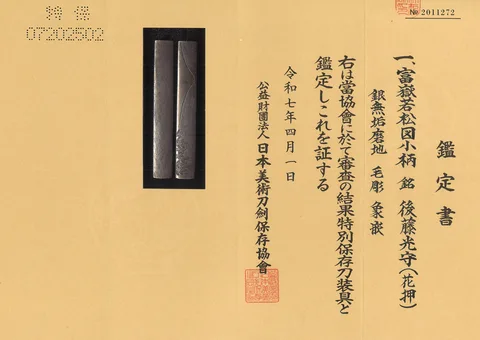 特保
07202502
№ 2011272
鑑定書
一、富嶽若松図小柄 銘 後藤光守(花押)
銀無垢磨地 毛彫 象嵌
右は當協會に於て審査の結果特別保存刀装具と
鑑定しこれを証する
令和七年四月一日
公益財團法人 日本美術刀劍保存協會